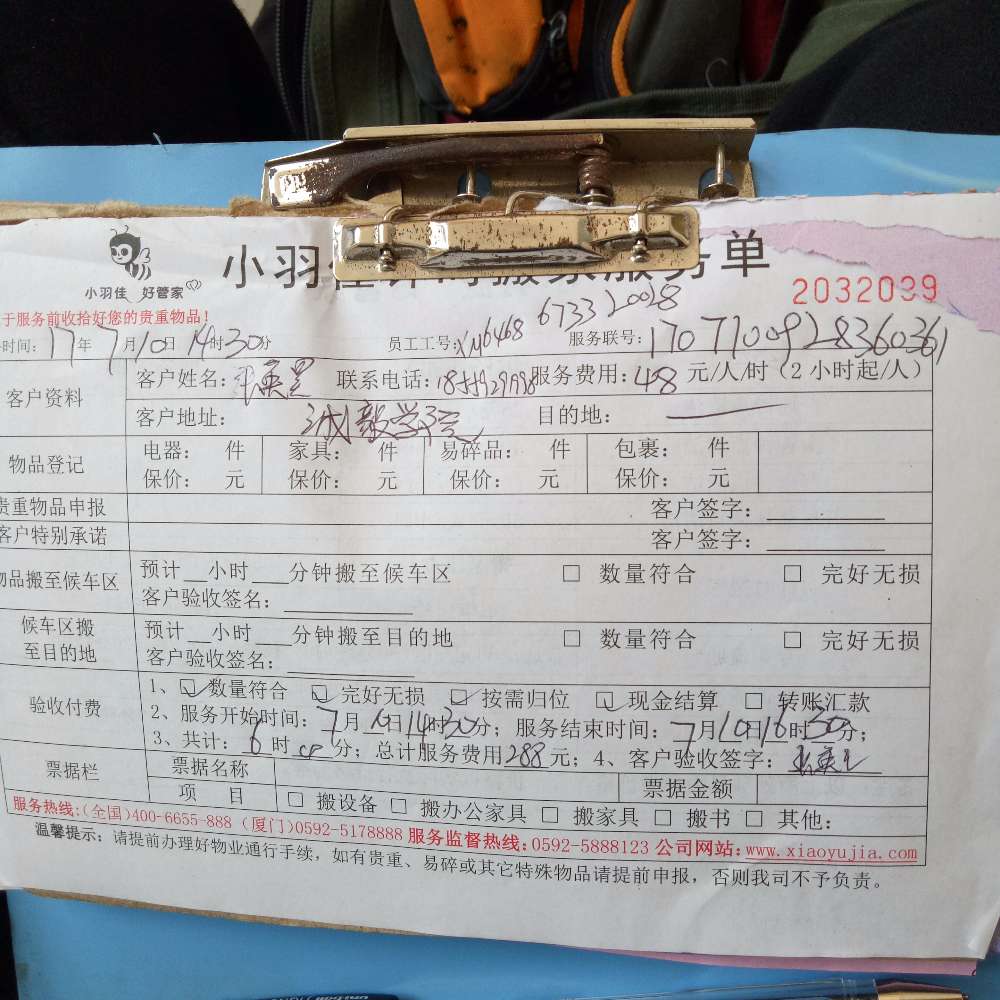 小羽佳 好管家
小羽 务单
2032039
于服务前收拾好您的贵重物品！
时间：17年7月10日14时30分 员工工号：XM6468 673320028 服务联号：1707100928360361
客户资料
客户姓名： 联系电话： 服务费用：48元/人/时（2小时起/人）
客户地址：诚毅学院 目的地：
物品登记
电器： 件 家具： 件 易碎品： 件 包裹： 件
保价： 元 保价： 元 保价： 元 保价： 元
贵重物品申报 客户签字：
客户特别承诺 客户签字：
物品搬至候车区
预计__小时__分钟搬至候车区 □ 数量符合 □ 完好无损
客户验收签名：
候车区搬至目的地
预计__小时__分钟搬至目的地 □ 数量符合 □ 完好无损
客户验收签名：
验收付费
1、☑数量符合 ☑完好无损 ☑按需归位 ☑现金结算 □ 转账汇款
2、服务开始时间：7月10日14时30分；服务结束时间：7月10日16时30分；
3、共计：6时 分；总计服务费用288元；4、客户验收签字：
票据栏 票据名称 票据金额
项 目 □ 搬设备 □ 搬办公家具 □ 搬家具 □ 搬书 □ 其他：
服务热线：(全国)400-6655-888 (厦门)0592-5178888 服务监督热线：0592-5888123 公司网站：www.xiaoyujia.com
温馨提示：请提前办理好物业通行手续，如有贵重、易碎或其它特殊物品请提前申报，否则我司不予负责。